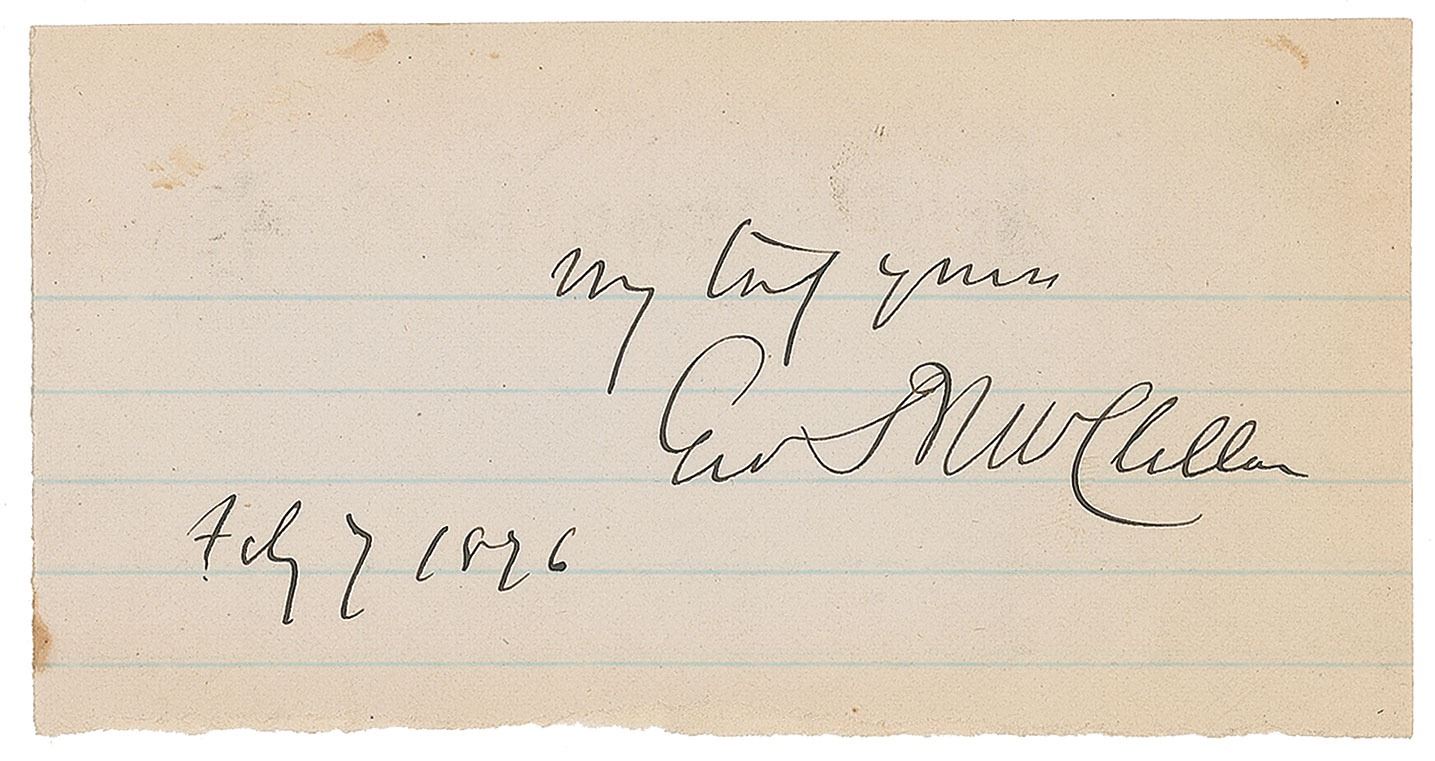 Very truly yours
Geo B McClellan
Feby 7 1876